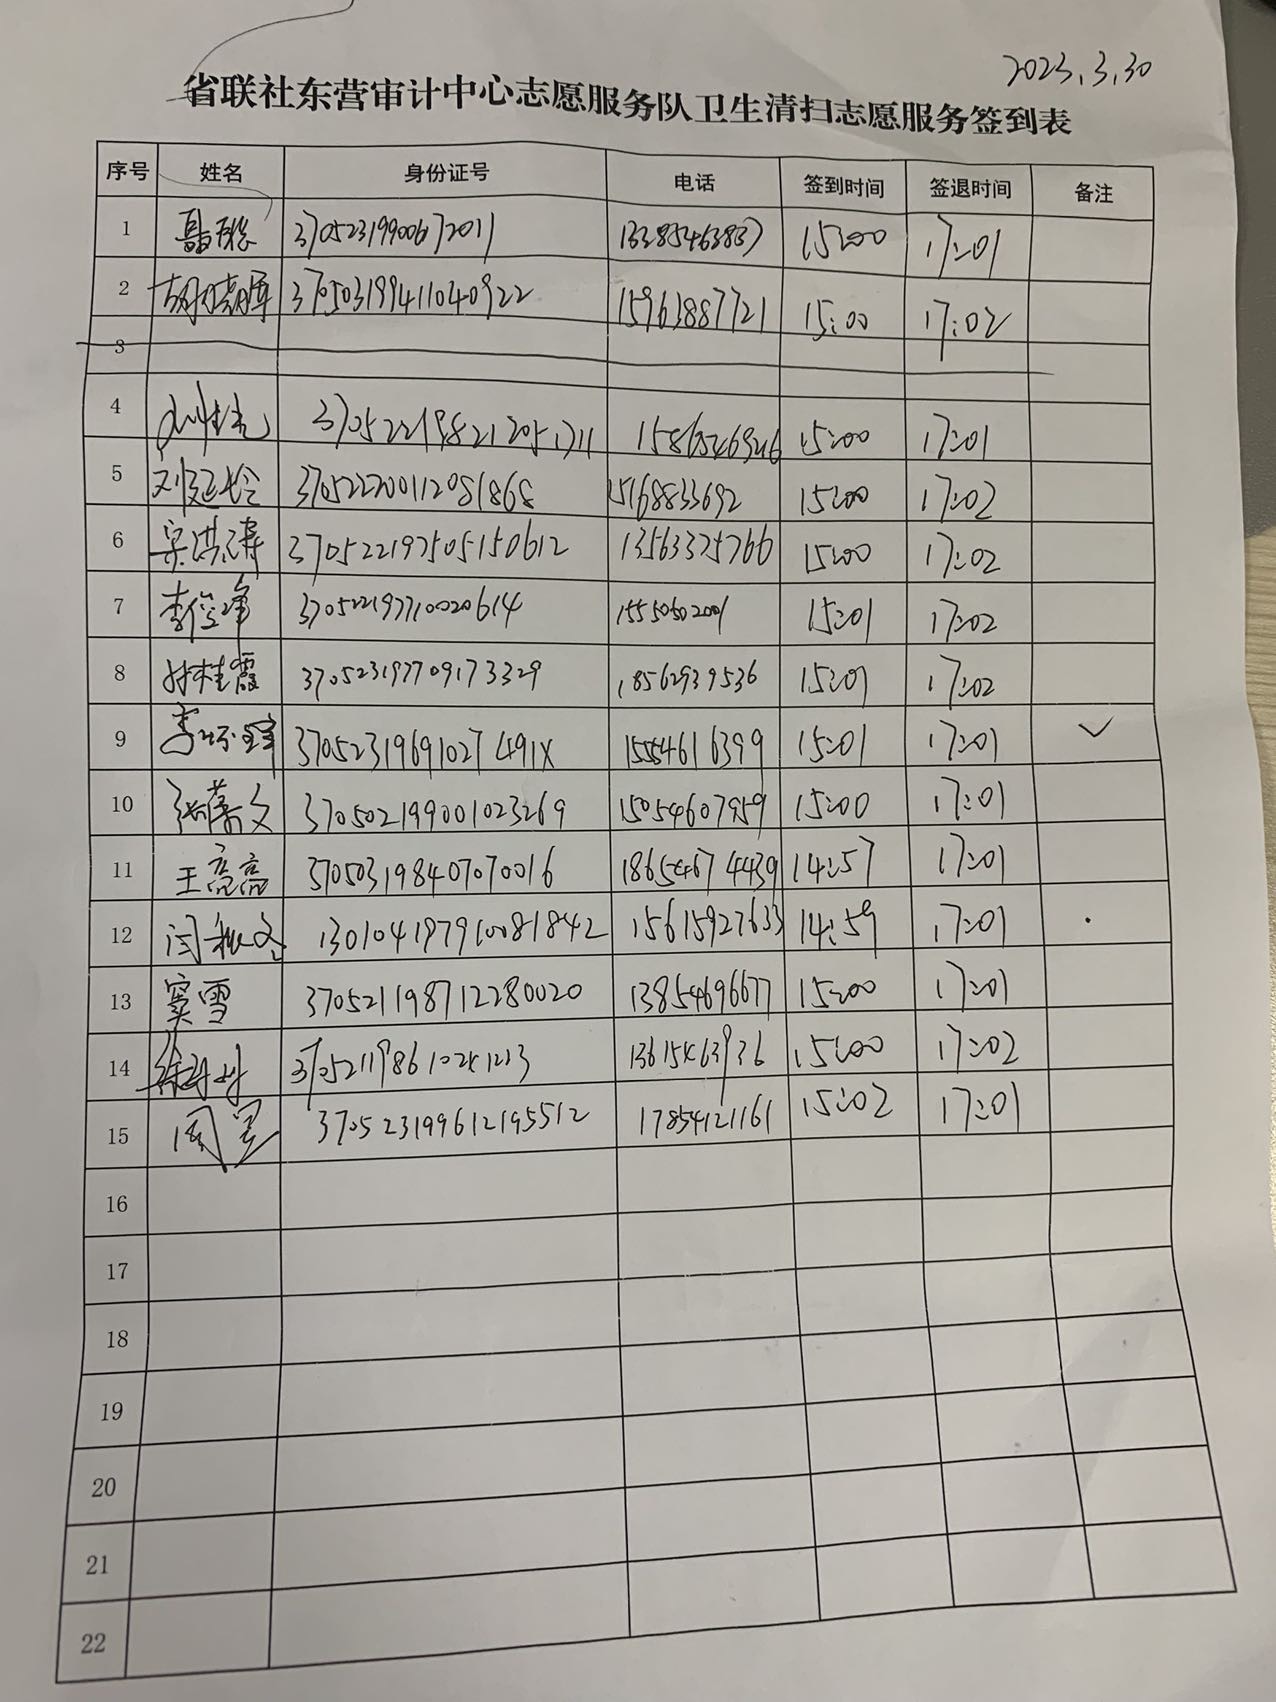 2023.3.30
省联社东营审计中心志愿服务队卫生清扫志愿服务签到表
序号 姓名 身份证号 电话 签到时间 签退时间 备注
1 15:00 17:01
2 胡晓晖 370503199411040922 15963887721 15:00 17:02
3
4 15:00 17:01
5 刘延玲 370522200112081868 15168833692 15:00 17:02
6 宋洪涛 370522197505150612 13563325766 15:00 17:02
7 李俊峰 370522197710020614 15550502001 15:01 17:02
8 林桂霞 370523197709173329 18562939536 15:01 17:02
9 37052319691027491X 15554616399 15:01 17:01 ✓
10 张蕭文 370502199001023269 15054607959 15:00 17:01
11 王亮亮 370503198407070016 18654674439 14:57 17:01
12 闫秋冬 130104197910081842 15615927633 14:59 17:01
13 窦雪 370521198712280020 13854696677 15:00 17:01
14 13615463936 15:00 17:02
15 周昊 370523199612195512 17854121161 15:02 17:01
16
17
18
19
20
21
22